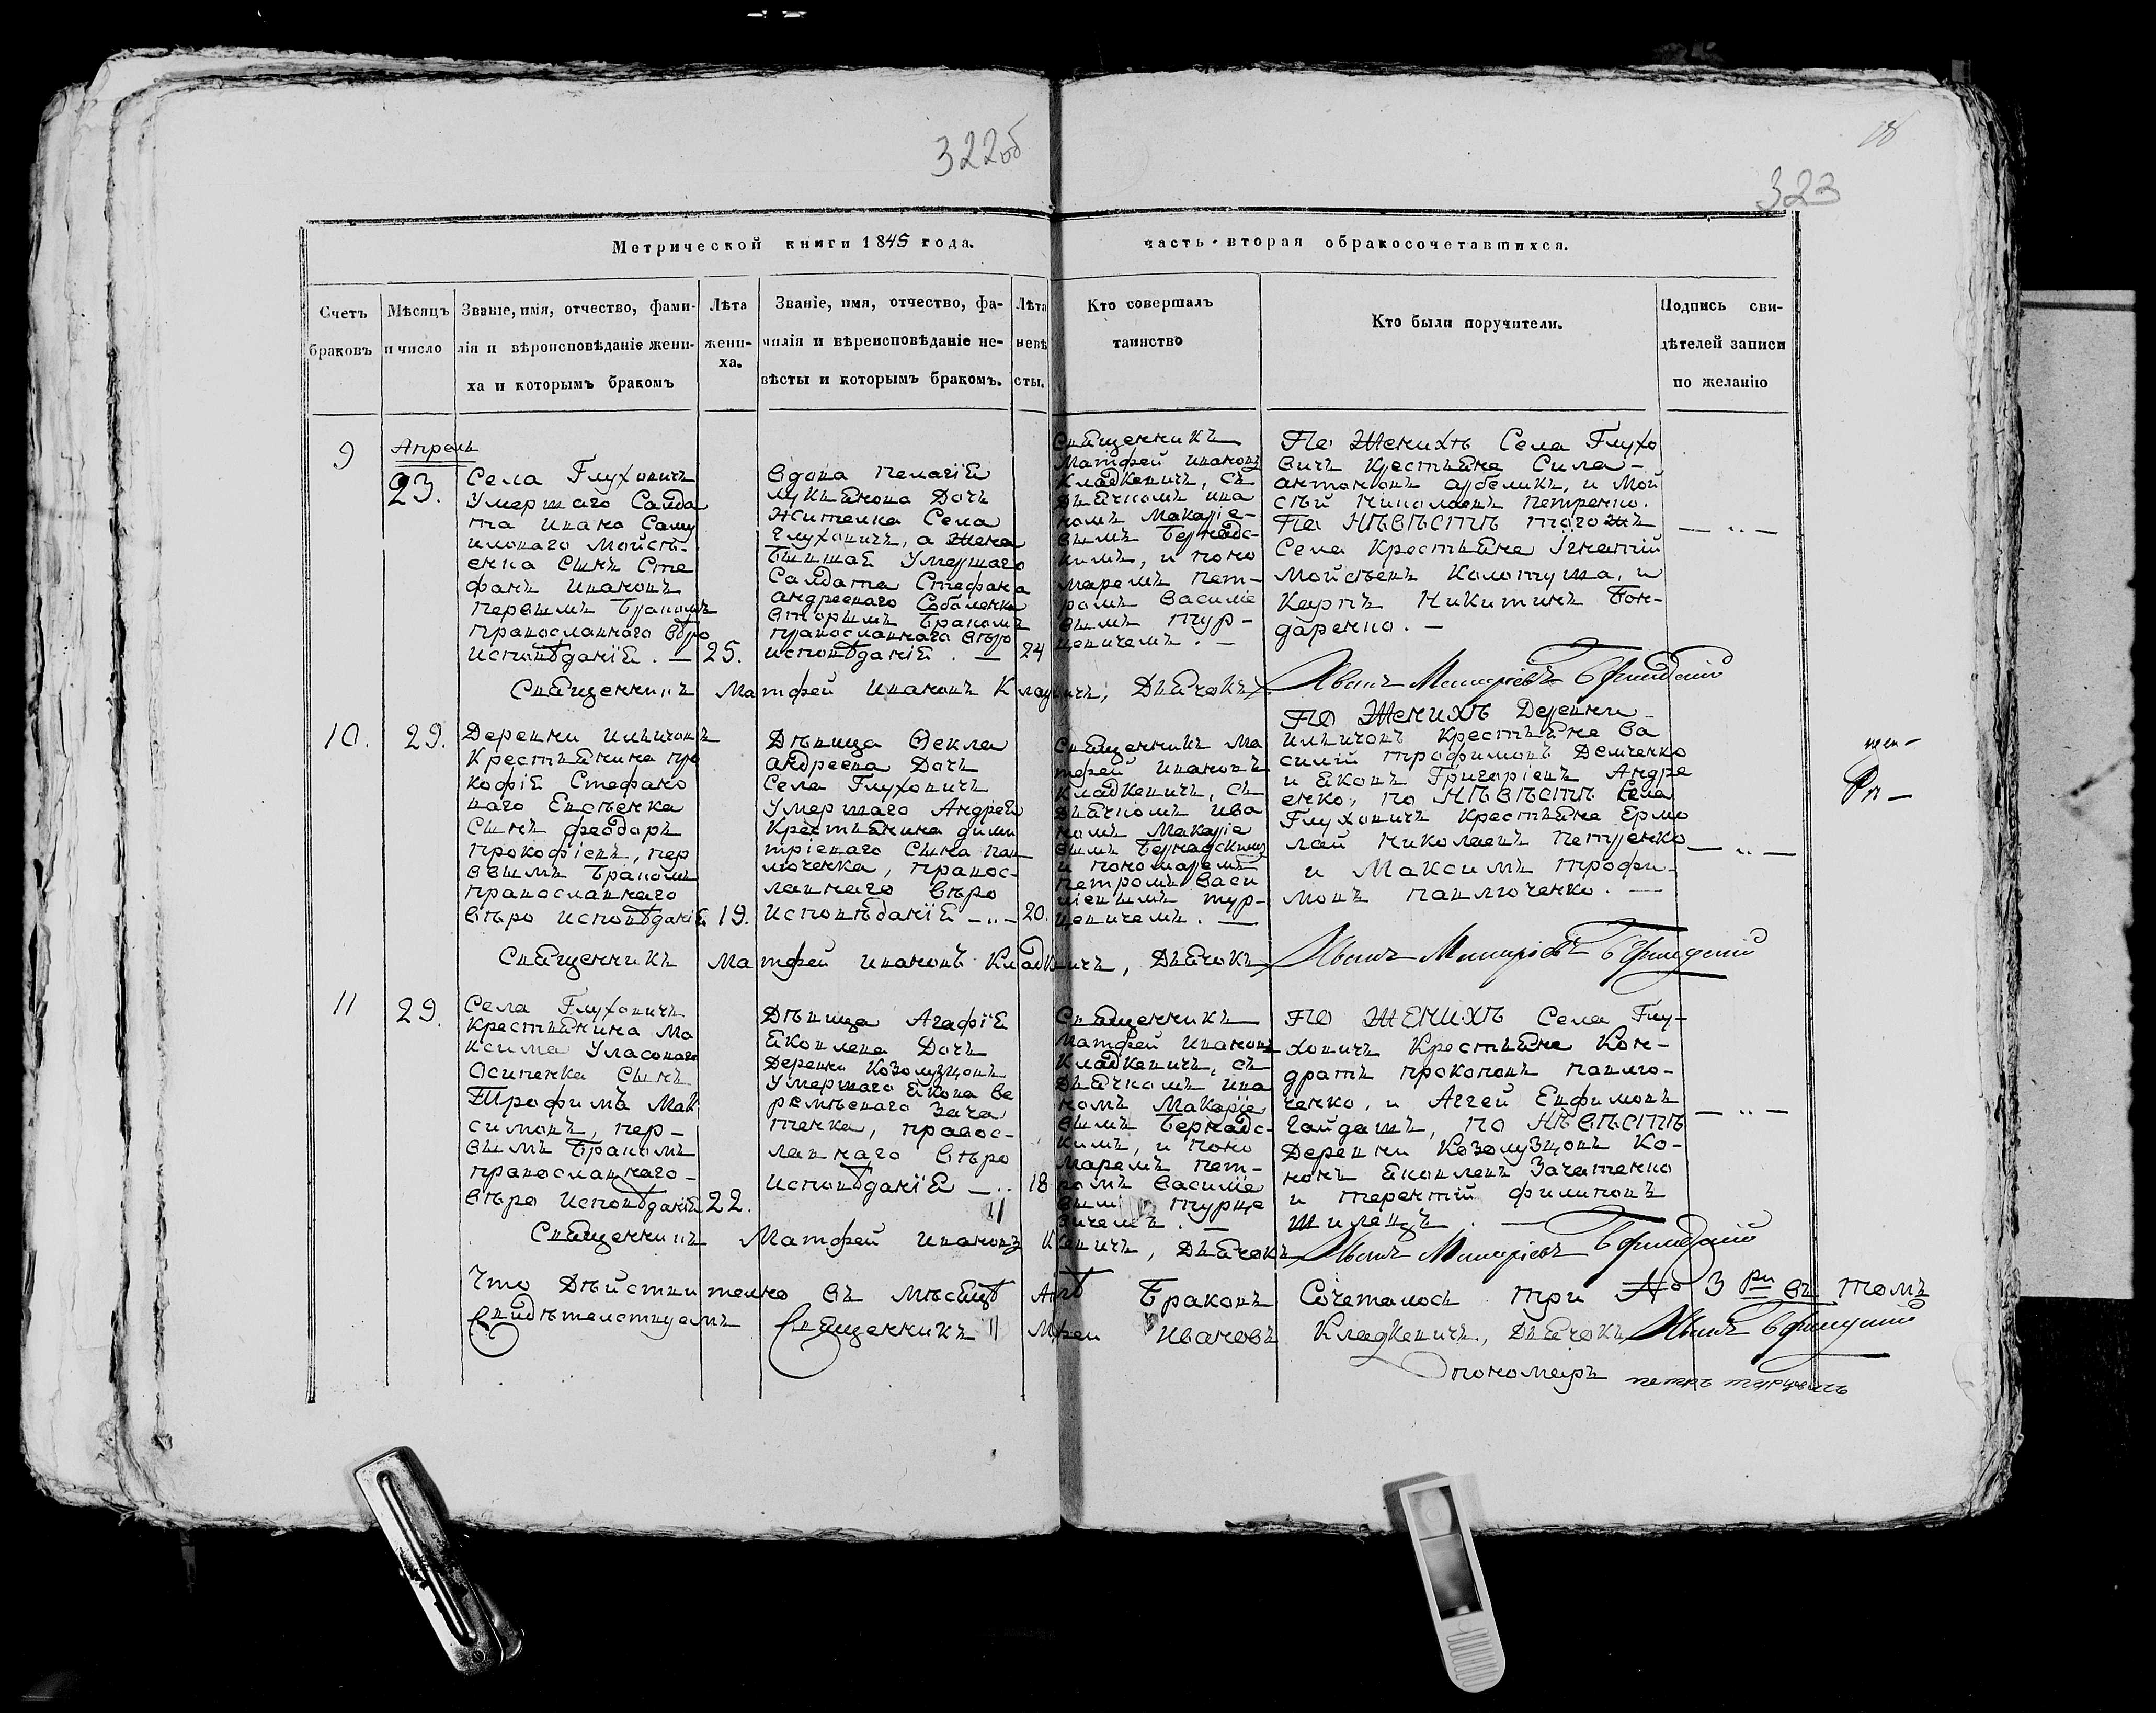 322об
18
323
Метрической книги 1845 года.
часть вторая обракосочетавшихся.
Счетъ браковъ
Мѣсяцъ и число
Званіе, имія, отчество, фами-
лія и вѣроисповѣданіе жени-
ха и которымъ бракомъ
Лѣта
жени-
ха.
Званіе, имя, отчество, фа-
милія и вѣреисповѣданіе не-
вѣсты и которымъ бракомъ.
Лѣта
невѣ
сты.
Кто совершалъ
таинство
Кто были поручители.
Подпись сви-
дѣтелей записи
по желанію
9
Апрель
23.
Села Глуховичъ
Умершаго Салда
та Ивана Саму
иловаго Мойсѣ-
енка Сынъ Сте
фанъ Ивановъ
первымъ Бракомъ
православнаго Вѣро
исповѣданіЯ. —
25.
Вдова ПелагіЯ
лукьянова Дочь
Жителка Села
Глуховичъ, а Жена
БывшаЯ Умершаго
Салдата Стефана
андреенаго Соболенка
вторымъ Бракомъ
православнаго вѣро
исповѣданіЯ. —
24
СвЯщенникъ
Матфей Ивановъ
Кладкевичъ, съ
дьЯчкомъ ива
номъ Макаріе-
вымъ Бернадс-
кимъ, и поно
маремъ Пет-
ромъ Василіе
вымъ Тур-
цевичемъ. —
ПО Женихѣ Села Глухо
вичъ крестьЯне Сила-
антоновъ арбеликъ, и Мой
сѣй Николаевъ Петренко.
ПО НѣВѣСТѣ тогожъ
Села КрестьЯне Ігнатій
Мойсѣевъ Колотуша, и
Карпъ Никитинъ Бон-
даренко. —
— „ —
СвЯщенникъ Матфей Ивановъ Кладкевичъ, ДьЯчокъ Иванъ Макаріевъ Бернадскій
10.
29.
Деревни Иличовъ
КрестьЯнина про
кофіЯ Стефано
ваго Евсѣенка
Сынъ феодоръ
Прокофіевъ, пер
ввымъ Бракомъ
православнаго
вѣро исповѣданіЯ
19.
Дѣвица Ѳекла
андреева Дочь
Села Глуховичъ
Умершаго АндреЯ
КрестьЯнина дими
тріеваго Сына пав
люченка, правос-
лавнаго вѣро
исповѣданіЯ — „ —
20.
СвЯщенникъ Ма
тфей Ивановъ
Кладкевичъ, съ
дьЯчкомъ Ива
номъ Макаріе
вымъ Бернадскимъ
и пономаремъ
Петромъ Васи
ліевымъ тур-
цевичемъ. —
ПО ЖенихѢ Деревни
Иличовъ крестьЯне Ва
силій трофимовъ Демченко
и Яковъ Григоріевъ Андре
енко, по НѣВѣСТѣ Села
Глуховичъ крестьЯне Ермо
лай Николаевъ Петренко
и Максимъ трофи-
мовъ павлюченко. —
— „ —
СвЯщенникъ Матфей Ивановъ Кладкевичъ, ДьЯчокъ Иванъ Макаріевъ Бернадскій
11
29.
Села Глуховичъ
КрестьЯнина Ма
ксима Уласоваго
Осипенка Сынъ
Трофимъ Мак
симовъ, пер-
вымъ Бракомъ
православнаго-
вѣро исповѣданіЯ
22.
Дѣвица АгафіЯ
Яковлева Дочь
Деревни Козолузцовъ
Умершаго Якова Ве
ремѣеваго Зача
тенка, правос-
лавнаго вѣро
исповѣданіЯ — „
18
СвЯщенникъ
Матфей Ивановъ
Кладкевичъ, съ
дьЯчкомъ ива
номъ Макаріе
вымъ Бернадс-
кимъ, и поно
маремъ Пет-
ромъ Василіе
вым турце
вичемъ. —
ПО ЖЕНИХѢ Села Глу-
ховичъ КрестьЯне Кон-
дратъ прокоповъ павлю-
ченко, и Аггей Евфимовъ
Гайдашъ, ПО НѢВѢСТѢ
Деревни Козолузцовъ Ко-
нонъ Яковлевъ Зачатенко
и терентій филиповъ
шилецъ. —
— „ —
СвЯщенникъ Матфей Ивановъ Кевичъ, ДьЯчокъ Иванъ Макаріевъ Бернадскій
Что Дѣйствително въ мѣсЯцѣ Браковъ Сочеталось три № 3 ри въ томъ
Свидѣтелствуемъ СвЯщенникъ Ивановъ Кладкевичъ, ДьЯчокъ Иванъ Бернадскій
пономарь петръ турцевичъ